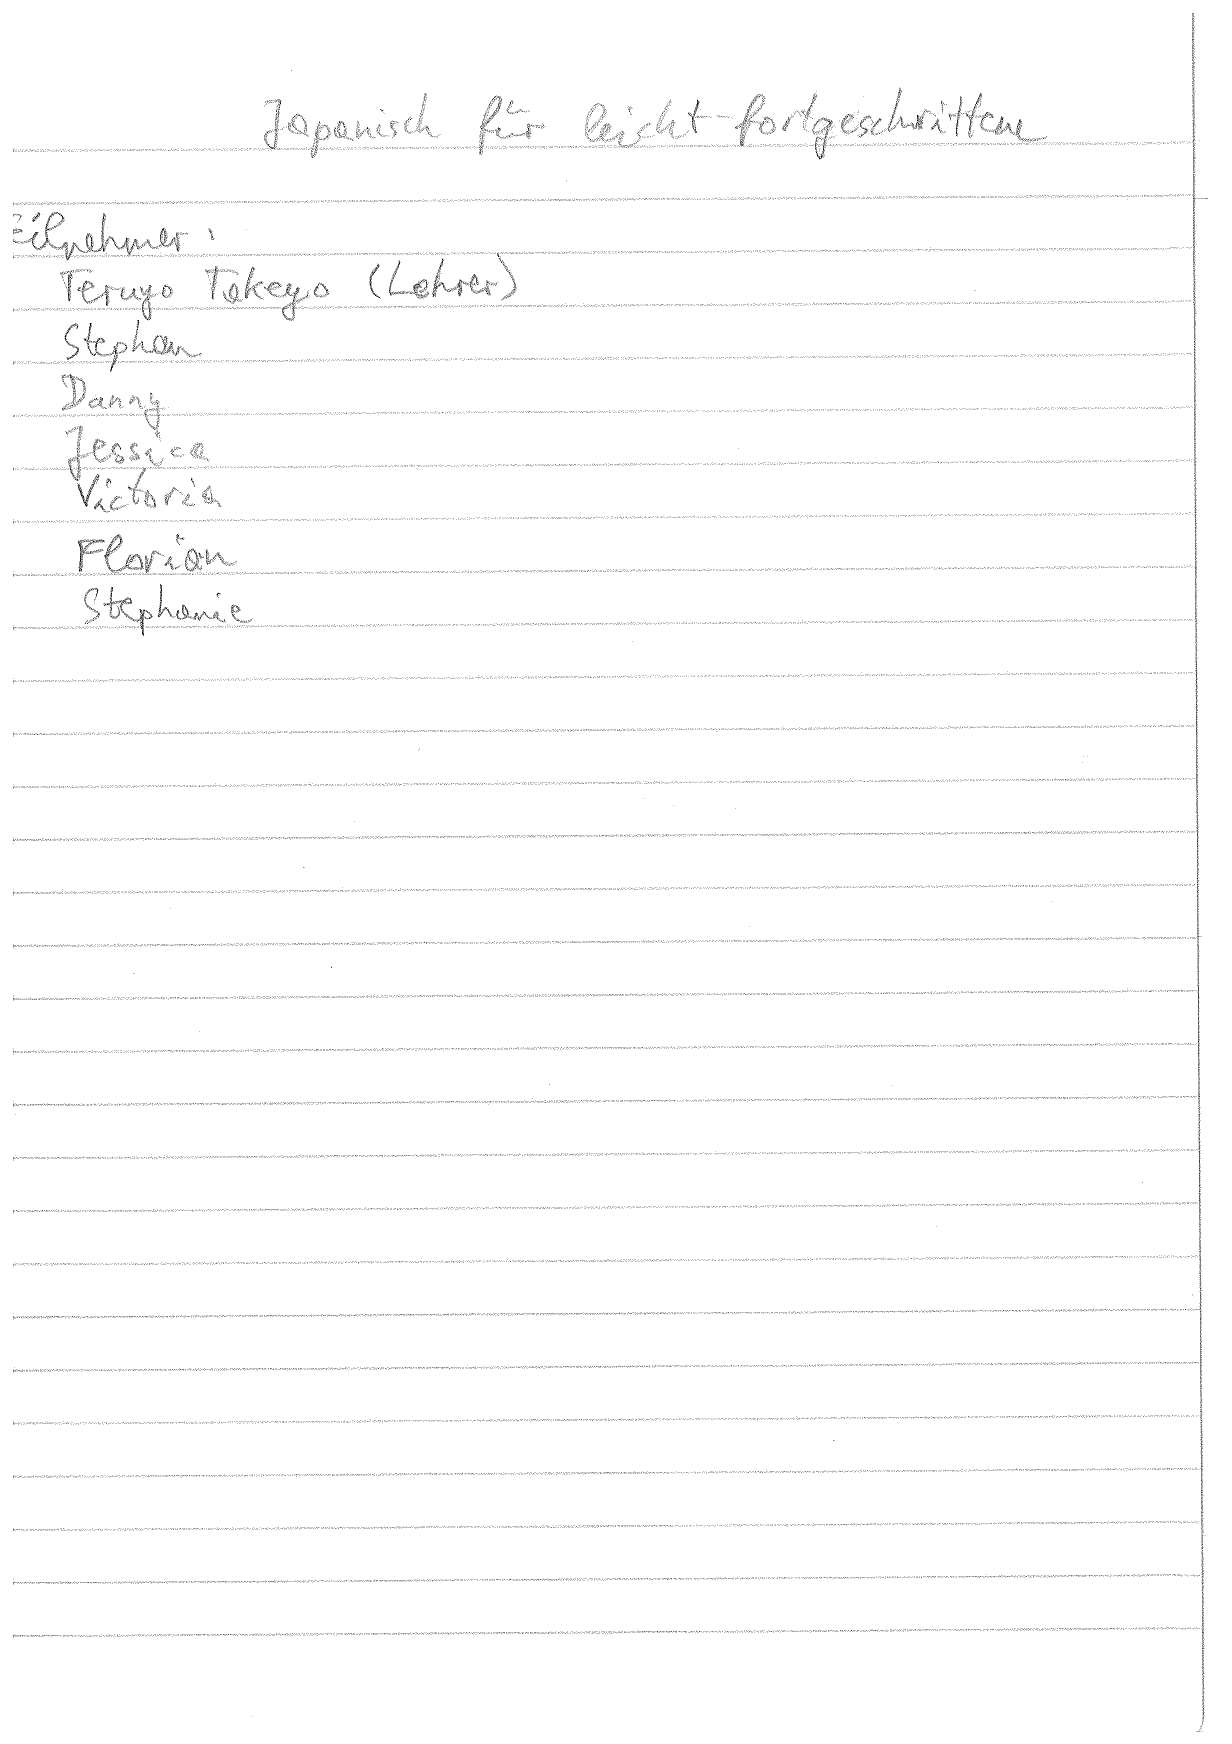 Japanisch für leicht-fortgeschrittene
Teilnehmer:
Teruyo Takeyo (Lehrer)
Stephan
Danny
Jessica
Victoria
Florian
Stephanie